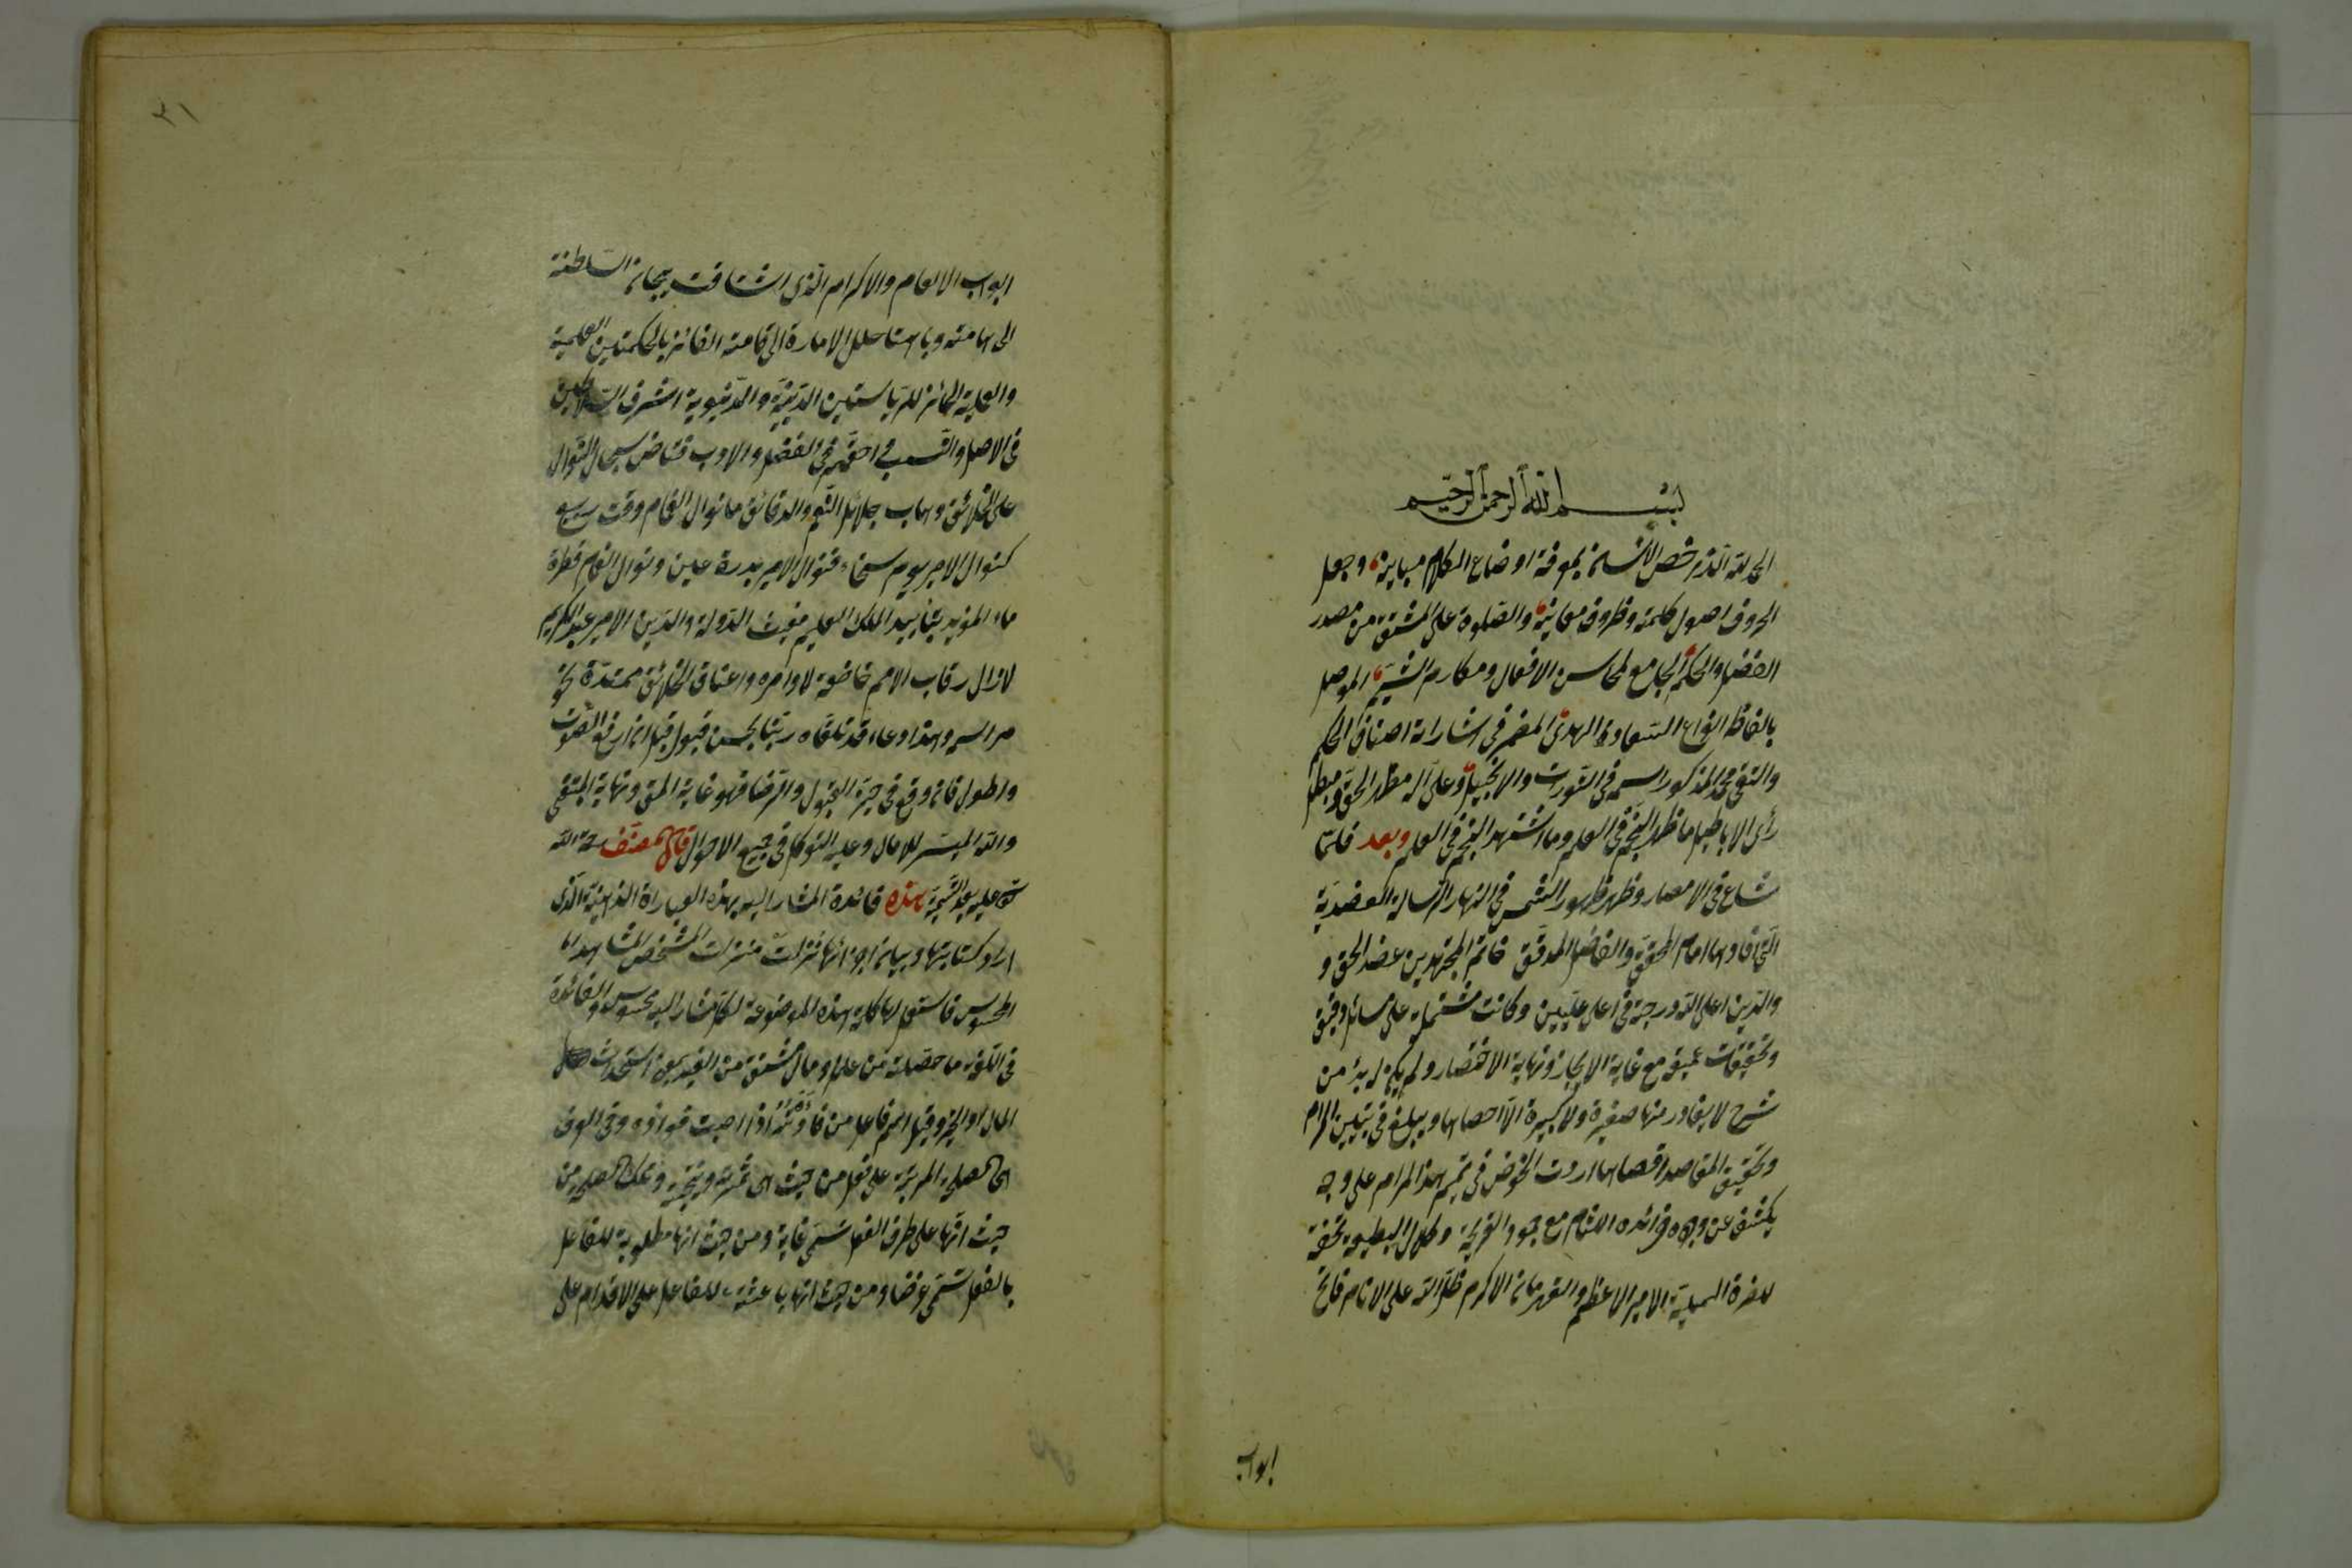 بسم الله الرحمن الرحيم
الحمد لله الذى خص الانسان بمعرفة اوضاع الكلام ومبانيه وجعل
الحروف اصول كلمته وظروف معانيه والصلوة على المشتق من مصدر
الفضل والحكم الجامع لمحاسن الافعال ومكارم الشيم الموصل
بالفاظه انواع السعادة الهدى المضمر فى اشاراته اصناف الحكم
والتقى محمد المذكور اسمه فى التوراة والانجيل وعلى آله مظهر الحق ومبطل
رأى الاباطيل ما ظهر النجم فى العلم وما اشتهر النجم فى العلم وبعد فلما
شاع فى الامصار وظهر ظهور الشمس فى النهار الرسالة العضدية
التى افادها امام المحقق والفاضل المدقق خاتم المجتهدين عضد الحق و
والدين اعلى الله درجته فى اعلى عليين وكانت مشتملة على مسائل دقيق
وتحقيقات عميقة مع غاية الايجاز ونهاية الاختصار ولم يكن له بد من
شرح لا يغادر منها صغيرة ولا كبيرة الا احصاها ويبلغ فى تبيين المرام
وتحقيق المقاصد اقصاها اردت الخوض فى تتميم هذا المرام على وجه
يكشف عن وجوه فوائده اللثام مع جمود القريحة وكلال الطبيعة تحفة
للحضرة العلية الامير الاعظم والقهرمان الاكرم ظل الله على الانام فاتح
ابواب
٢١
ابواب الانعام والاكرام الذى اشتاقت تيجان السلطنة
الى هامته وباهت حلل الامارة الى قامته الفائز بالحكمتين العلمية
والعملية الحائز للرياستين الدينية والدنيوية اشرف السلاطين
فى الاصل والنسب احقهم فى الفضل والادب فياض سجال النوال
على الخلائق وهاب جلائل النعم والدقائق ما نوال الغمام وقت ربيع
كنوال الامير يوم سخاء فنوال الامير بدرة عين ونوال الغمام قطرة
ماء المؤيد بتأييد الملك العليم مغيث الدولة والدين الامير عبد الكريم
لازال رقاب الامم خاضعة لاوامره واعناق الخلائق ممتدة نحو
مراسمه وهذا دعاء قد تلقاه ربنا بحسن قبول قبل ان ارفع الصوت
واطول فان وقع فى حيز القبول والرضا فهو غاية المنى ونهاية المبتغى
والله الميسر للآمال وعليه التوكل فى جميع الاحوال قال المصنف رحمة الله
عليه بعد التسمية هذه فائدة المشار اليه بهذه العبارات الذهنية الذى
اراد كتابتها وبيان اجزائها نزلت منزلة المشخص المشاهد
المحسوس فاستعمل لها كلمة هذه الموضوعة لكل مشار اليه محسوس والفائدة
فى اللغة ما حصلته من علم او مال مشتق من الفيد بمعنى استحداث
المال او الخير وقيل اسم فاعل من فأدته اذا اصبت فؤاده وفى العرف
هى المصلحة المرتبة على فعل من حيث هى ثمرته ونتيجته وتلك المصلحة من
حيث انها على طرف الفعل تسمى غاية ومن حيث انها مطلوبة للفاعل
بالفعل تسمى غرضا ومن حيث انها باعثة للفاعل على الاقدام على